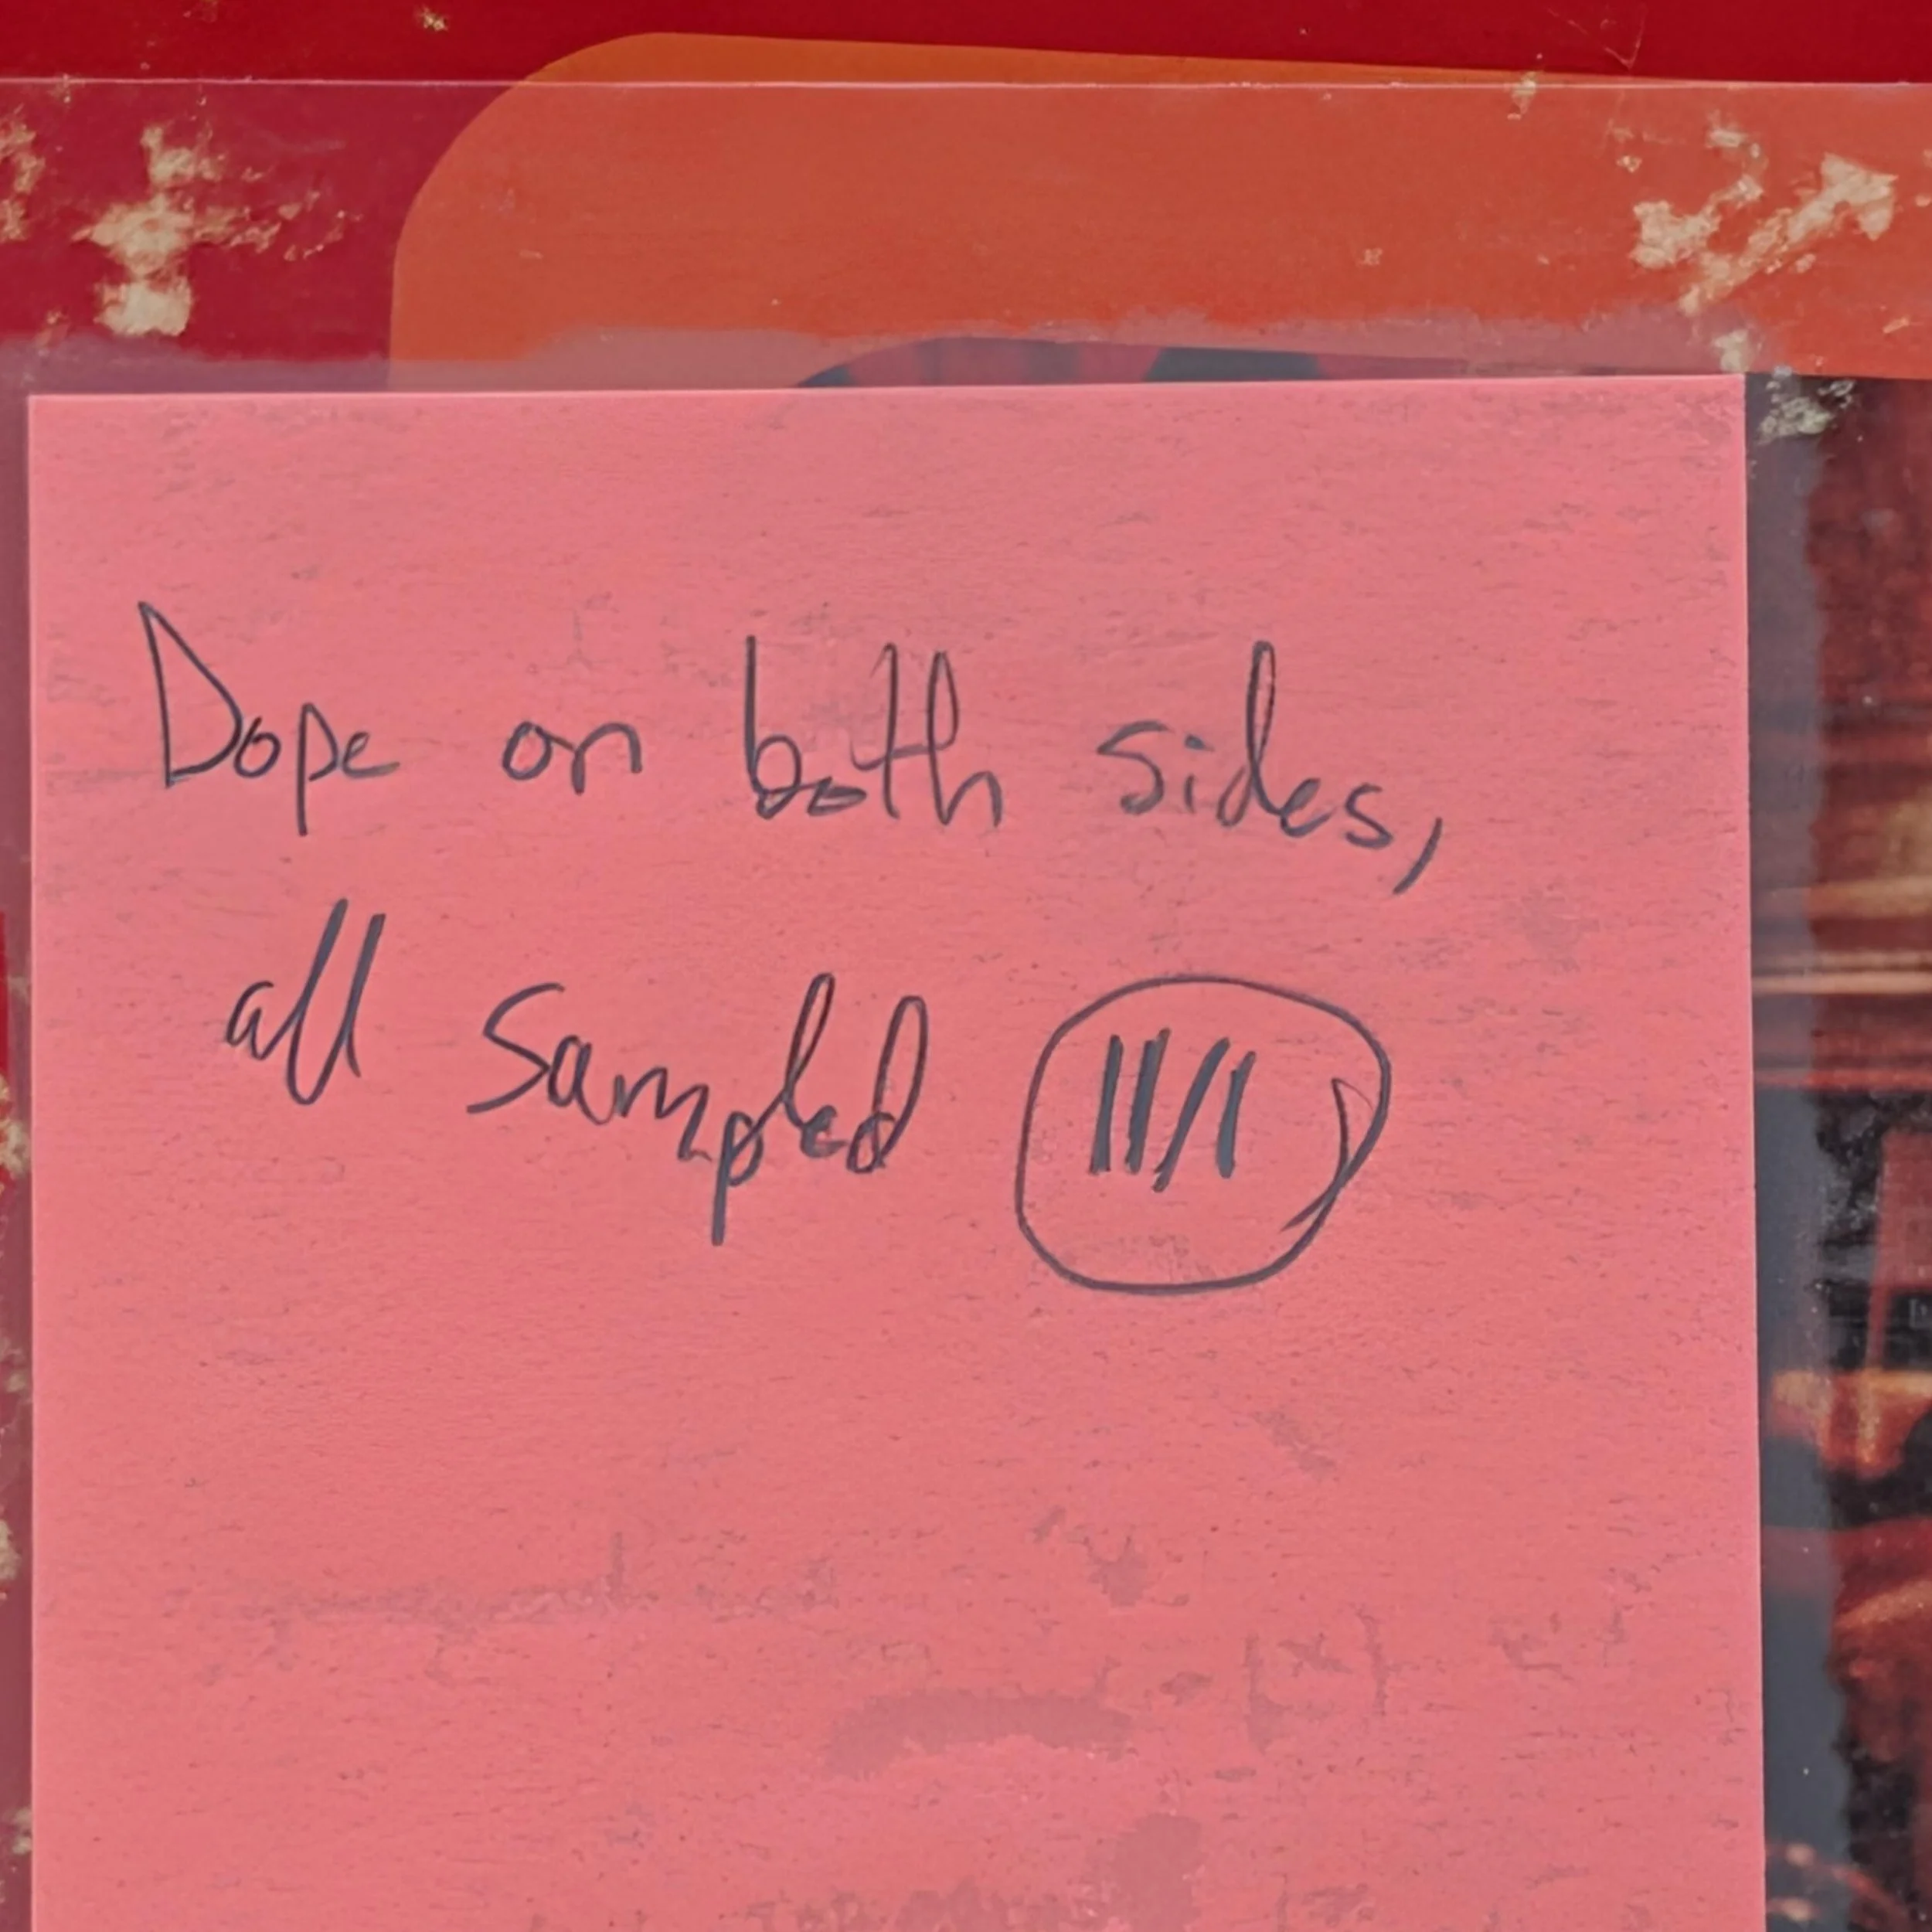 Dope on both sides,
all sampled 11/1